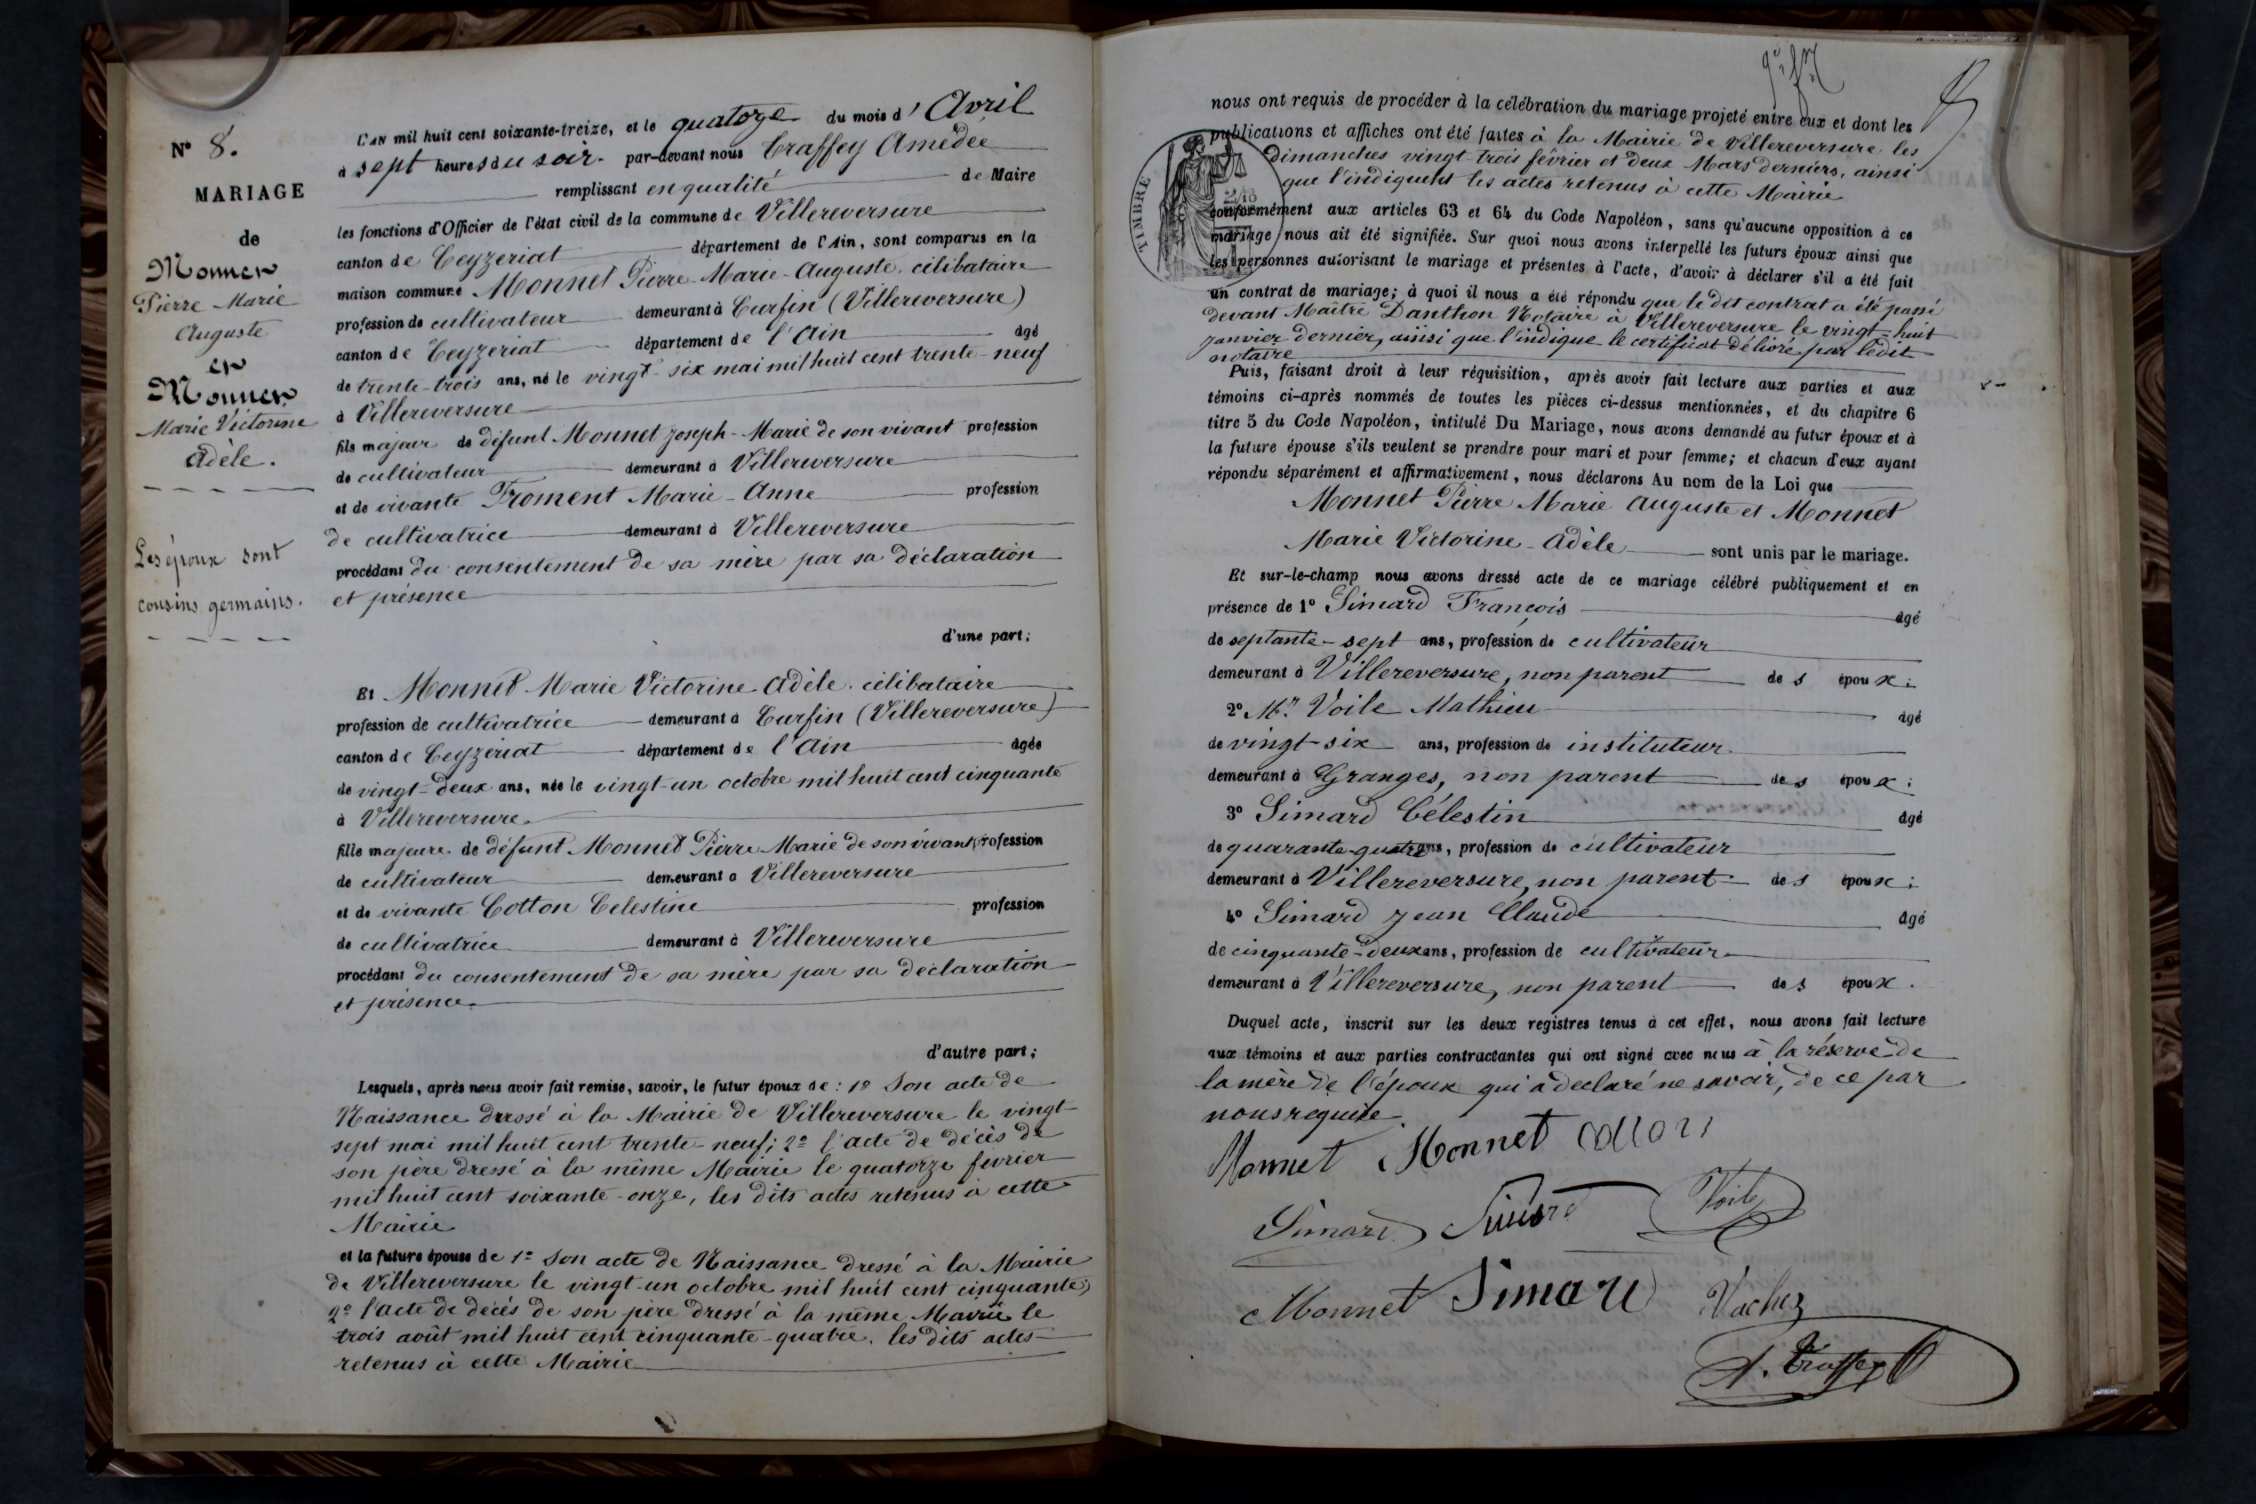 N° 8.
MARIAGE
de
Monnet
Pierre Marie
Auguste
et
Monnet
Marie Victorine
Adèle.
Les époux sont
cousins germains.
L'AN mil huit cent soixante-treize, et le quatorze du mois d'Avril
à sept heures du soir. par-devant nous Traffey Amédée
remplissant en qualité de Maire
les fonctions d'Officier de l'état civil de la commune de Villereversure
canton de Ceyzeriat département de l'Ain, sont comparus en la
maison commune Monnet Pierre-Marie-Auguste, célibataire
profession de cultivateur demeurant à Turfin (Villereversure)
canton de Ceyzeriat département de l'Ain âgé
de trente-trois ans, né le vingt-six mai mil huit cent trente-neuf
à Villereversure
fils majeur de défunt Monnet Joseph-Marie de son vivant profession
de cultivateur demeurant à Villereversure
et de vivante Froment Marie-Anne profession
de cultivatrice demeurant à Villereversure
procédant du consentement de sa mère par sa déclaration
et présence
d'une part;
Et Monnet Marie Victorine Adèle. célibataire
profession de cultivatrice demeurant à Turfin (Villereversure)
canton de Ceyzeriat département de l'Ain âgée
de vingt-deux ans, née le vingt-un octobre mil huit cent cinquante
à Villereversure.
fille majeure de défunt Monnet Pierre Marie de son vivant profession
de cultivateur demeurant à Villereversure
et de vivante Cotton Celestine profession
de cultivatrice demeurant à Villereversure
procédant du consentement de sa mère par sa déclaration
et présence.
d'autre part;
Lesquels, après nous avoir fait remise, savoir, le futur époux de: 1° Son acte de
Naissance dressé à la Mairie de Villereversure le vingt-
sept mai mil huit cent trente-neuf; 2° l'acte de décès de
son père dressé à la même Mairie le quatorze février
mil huit cent soixante-onze, les dits actes retenus à cette
Mairie
et la future épouse de 1° Son acte de Naissance dressé à la Mairie
de Villereversure le vingt-un octobre mil huit cent cinquante;
2° l'acte de décès de son père dressé à la même Mairie le
trois août mil huit cent cinquante-quatre. les dits actes
retenus à cette Mairie
nous ont requis de procéder à la célébration du mariage projeté entre eux et dont les
publications et affiches ont été faites à la Mairie de Villereversure les
dimanches vingt-trois février et deux Mars derniers, ainsi
que l'indiquent les actes retenus à cette Mairie
TIMBRE
conformément aux articles 63 et 64 du Code Napoléon, sans qu'aucune opposition à ce
mariage nous ait été signifiée. Sur quoi nous avons interpellé les futurs époux ainsi que
les personnes autorisant le mariage et présentes à l'acte, d'avoir à déclarer s'il a été fait
un contrat de mariage; à quoi il nous a été répondu que le dit contrat a été passé
devant Maître Danthon Notaire à Villereversure le vingt-huit
janvier dernier, ainsi que l'indique le certificat délivré par ledit
notaire
Puis, faisant droit à leur réquisition, après avoir fait lecture aux parties et aux
témoins ci-après nommés de toutes les pièces ci-dessus mentionnées, et du chapitre 6
titre 5 du Code Napoléon, intitulé Du Mariage, nous avons demandé au futur époux et à
la future épouse s'ils veulent se prendre pour mari et pour femme; et chacun d'eux ayant
répondu séparément et affirmativement, nous déclarons Au nom de la Loi que
Monnet Pierre Marie Auguste et Monnet
Marie Victorine-Adèle sont unis par le mariage.
Et sur-le-champ nous avons dressé acte de ce mariage célébré publiquement et en
présence de 1° Simard François âgé
de septante-sept ans, profession de cultivateur
demeurant à Villereversure, non parent des époux;
2° Mr. Voile Mathieu âgé
de vingt-six ans, profession de instituteur
demeurant à Granges, non parent des époux;
3° Simard Célestin âgé
de quarante-quatre ans, profession de cultivateur
demeurant à Villereversure, non parent des époux;
4° Simard Jean Claude âgé
de cinquante-deux ans, profession de cultivateur
demeurant à Villereversure, non parent des époux.
Duquel acte, inscrit sur les deux registres tenus à cet effet, nous avons fait lecture
aux témoins et aux parties contractantes qui ont signé avec nous à la réserve de
la mère de l'époux qui a declaré ne savoir, de ce par
nous requise.
Monnet Monnet Cotton
Simard Simard Voile
Monnet Simard Vachez
A. Traffey